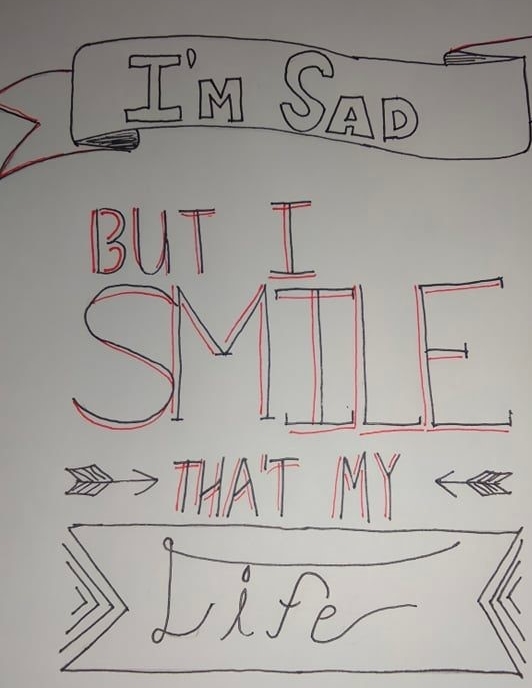 I'M SAD
BUT I
SMILE
THA'T MY
Life